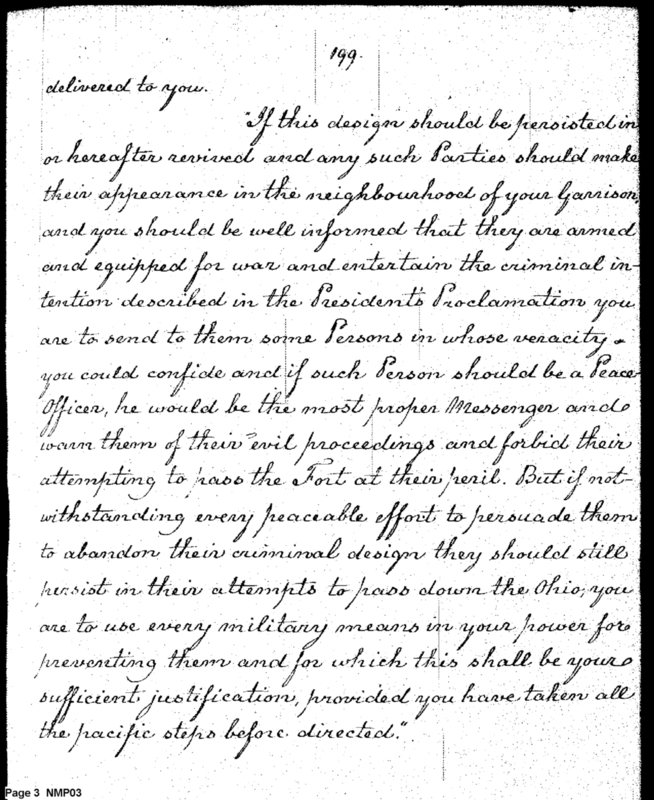 199.
delivered to you.
"If this design should be persisted in
or hereafter revived and any such Parties should make
their appearance in the neighbourhood of your Garrison,
and you should be well informed that they are armed
and equipped for war and entertain the criminal in-
tention described in the President's Proclamation you
are to send to them some Persons in whose veracity
you could confide and if such Person should be a Peace
Officer, he would be the most proper Messenger and
warn them of their evil proceedings and forbid their
attempting to pass the Fort at their peril. But if not-
withstanding every peaceable effort to persuade them
to abandon their criminal design they should still
persist in their attempts to pass down the Ohio, you
are to use every military means in your power for
preventing them and for which this shall be your
sufficient justification, provided you have taken all
the pacific steps before directed."
Page 3 NMP03